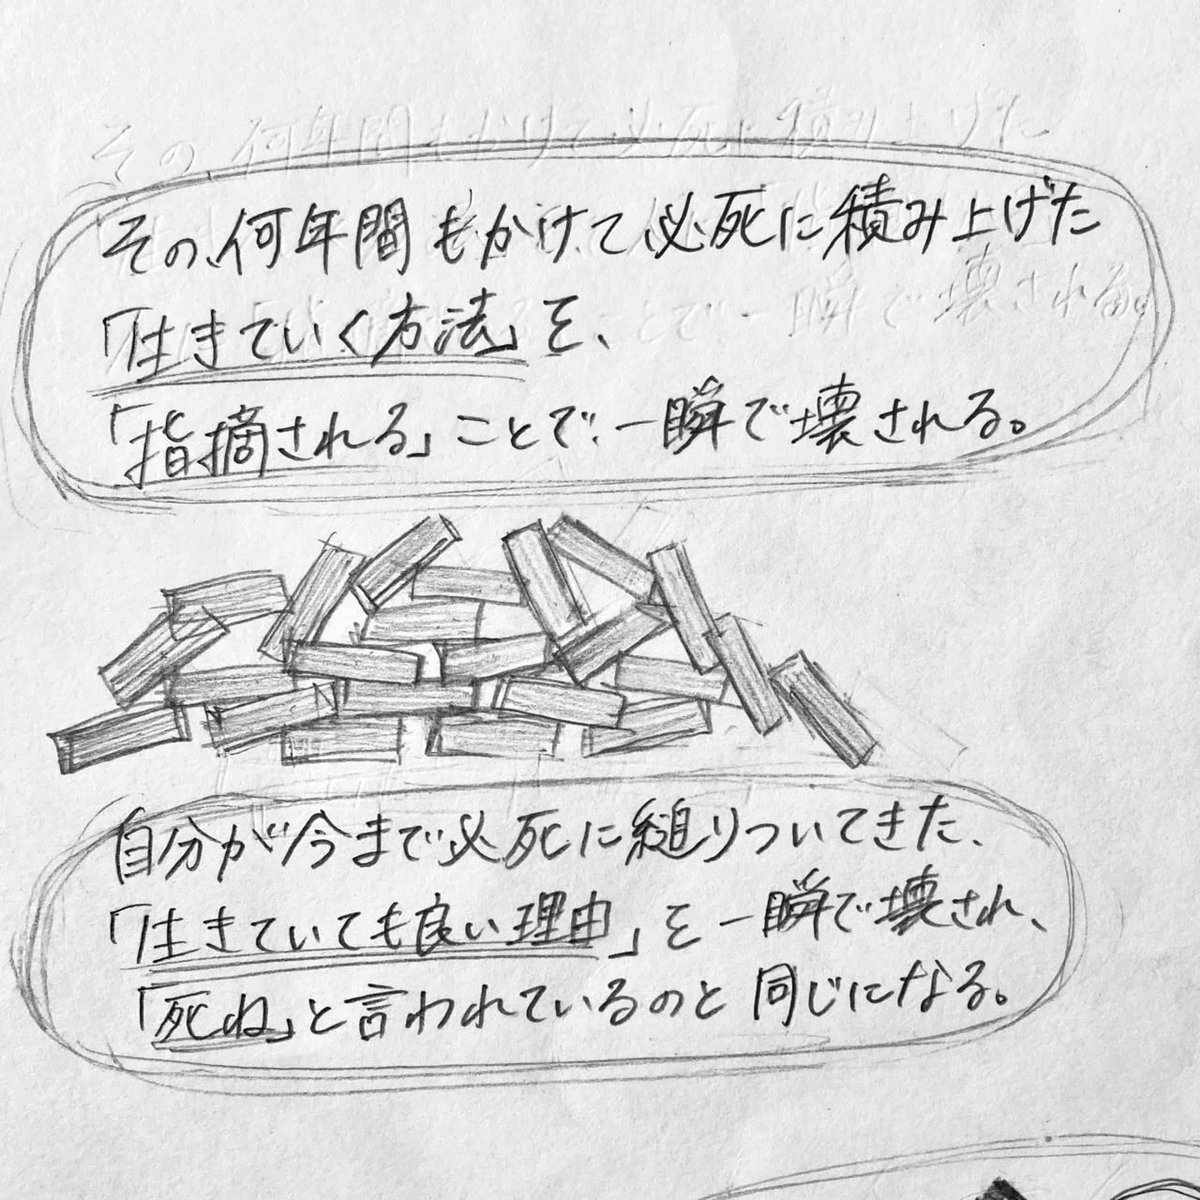 その何年間もかけて必死に積み上げた
「生きていく方法」を、
「指摘される」ことで、一瞬で壊される。
自分が今まで必死に縋りついてきた、
「生きていても良い理由」を一瞬で壊され、
「死ね」と言われているのと同じになる。